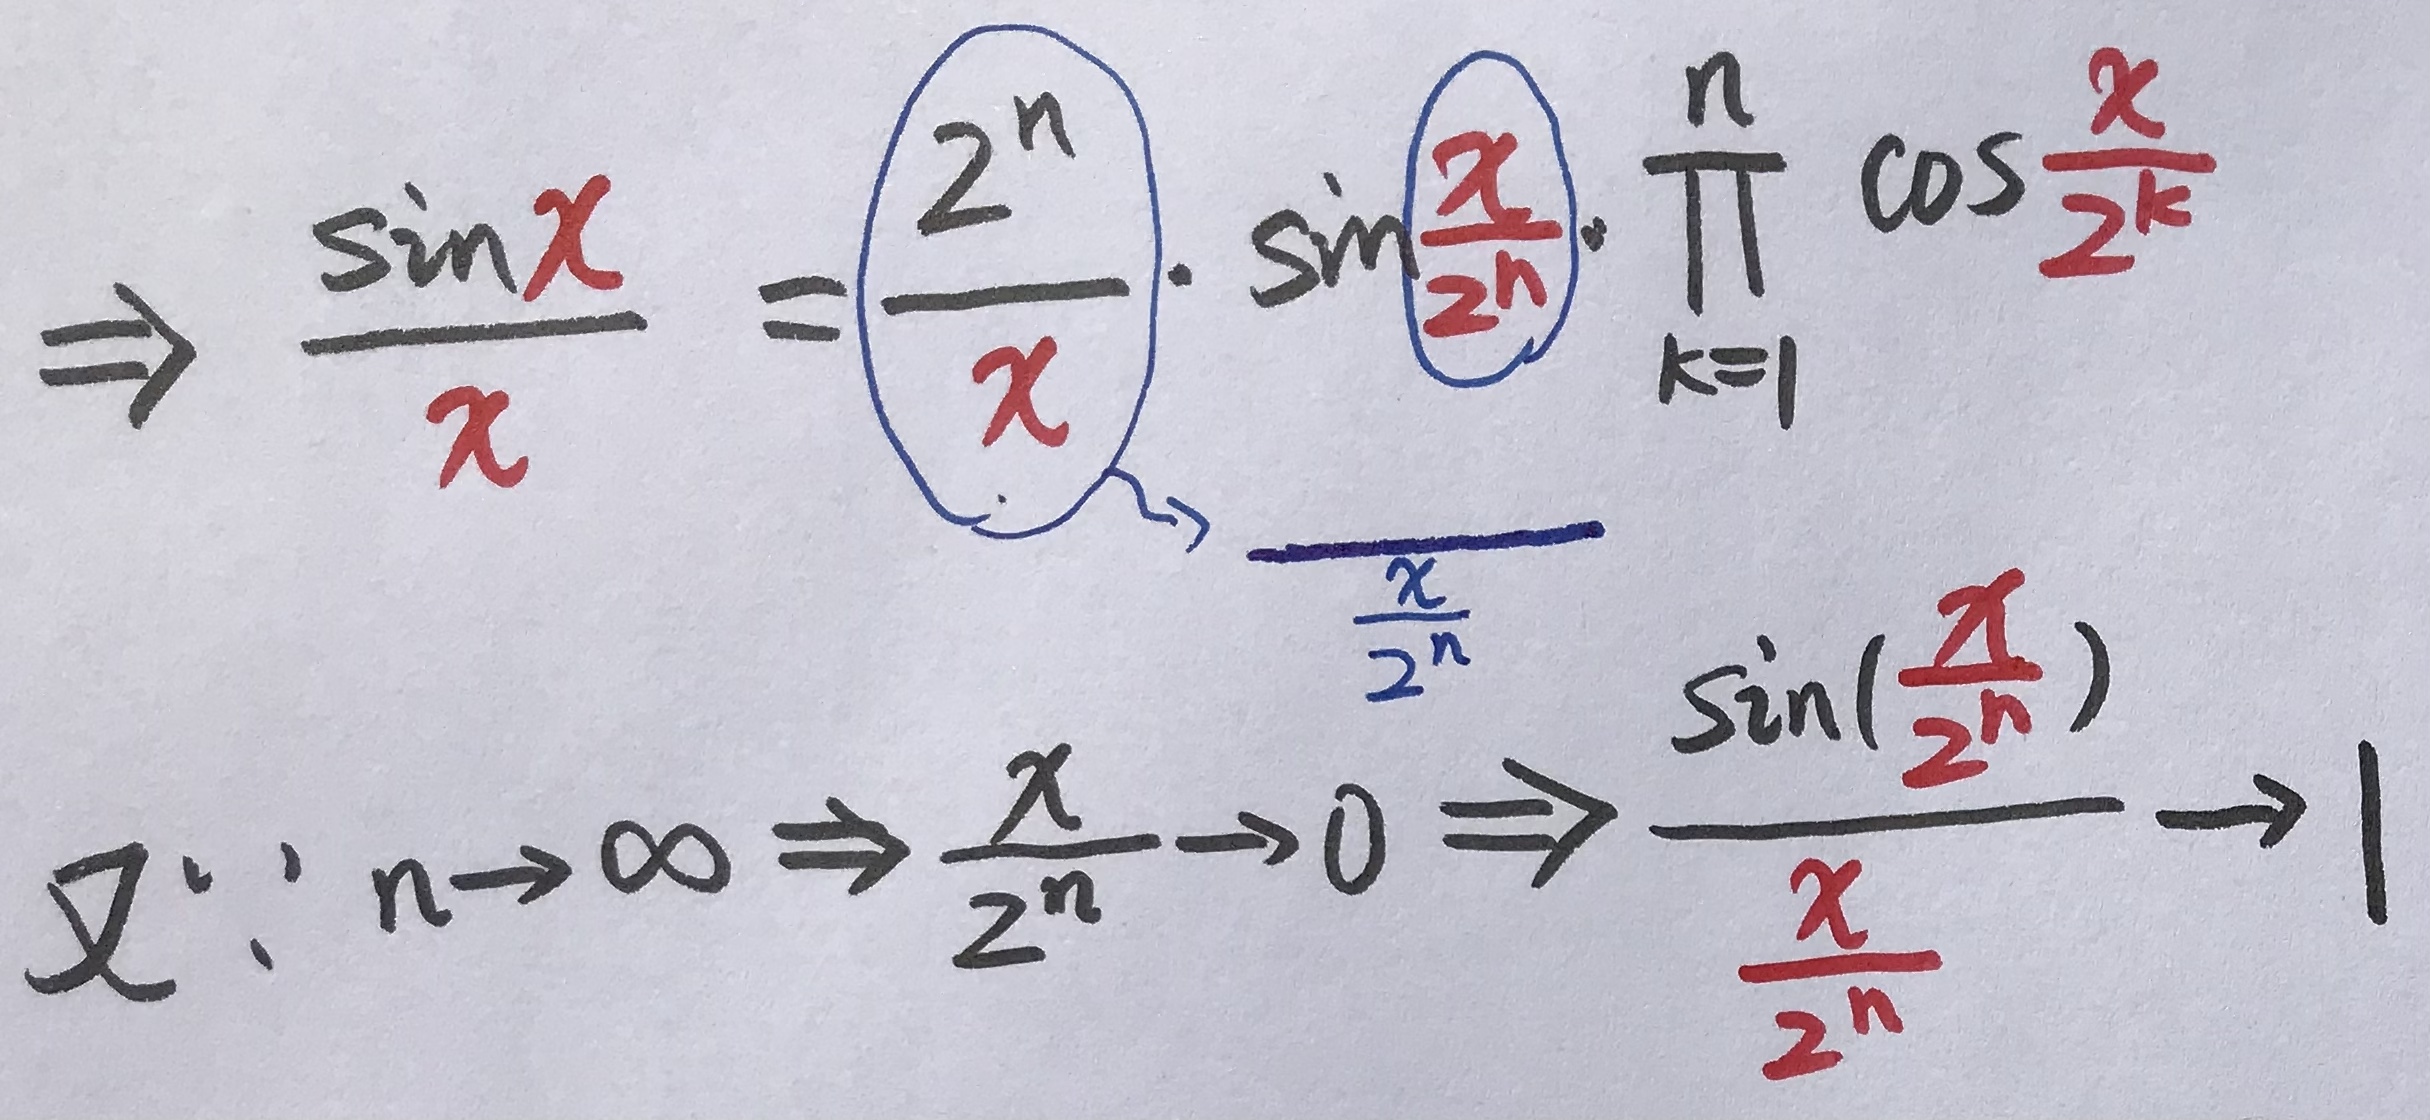 ⇒ sinx/x = 2ⁿ/x · sin x/2ⁿ · ∏ₖ₌₁ⁿ cos x/2ᵏ
x/2ⁿ
又∵ n→∞ ⇒ x/2ⁿ →0 ⇒ sin(x/2ⁿ)/(x/2ⁿ) → 1